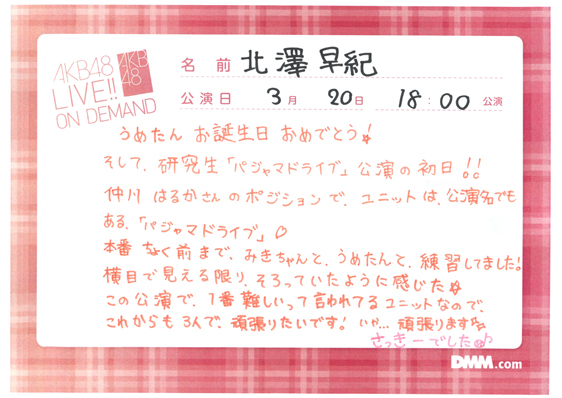 AKB48
LIVE!!
ON DEMAND
AKB
48
名 前 北澤 早紀
公演日 3月 20日 18:00 公演
うめたん お誕生日 おめでとう!
そして、研究生「パジャマドライブ」公演の初日!!
仲川 はるかさんのポジションで、ユニットは、公演名でも
ある、「パジャマドライブ」♡
本番 ちょく前まで、みきちゃんと、うめたんと、練習してました!
横目で見える限り、そろっていたように感じた☆
この公演で、1番難しいって言われてるユニットなので、
これからも 3人で、頑張りたいです! いや… 頑張ります
さっきーでした♪
DMM.com